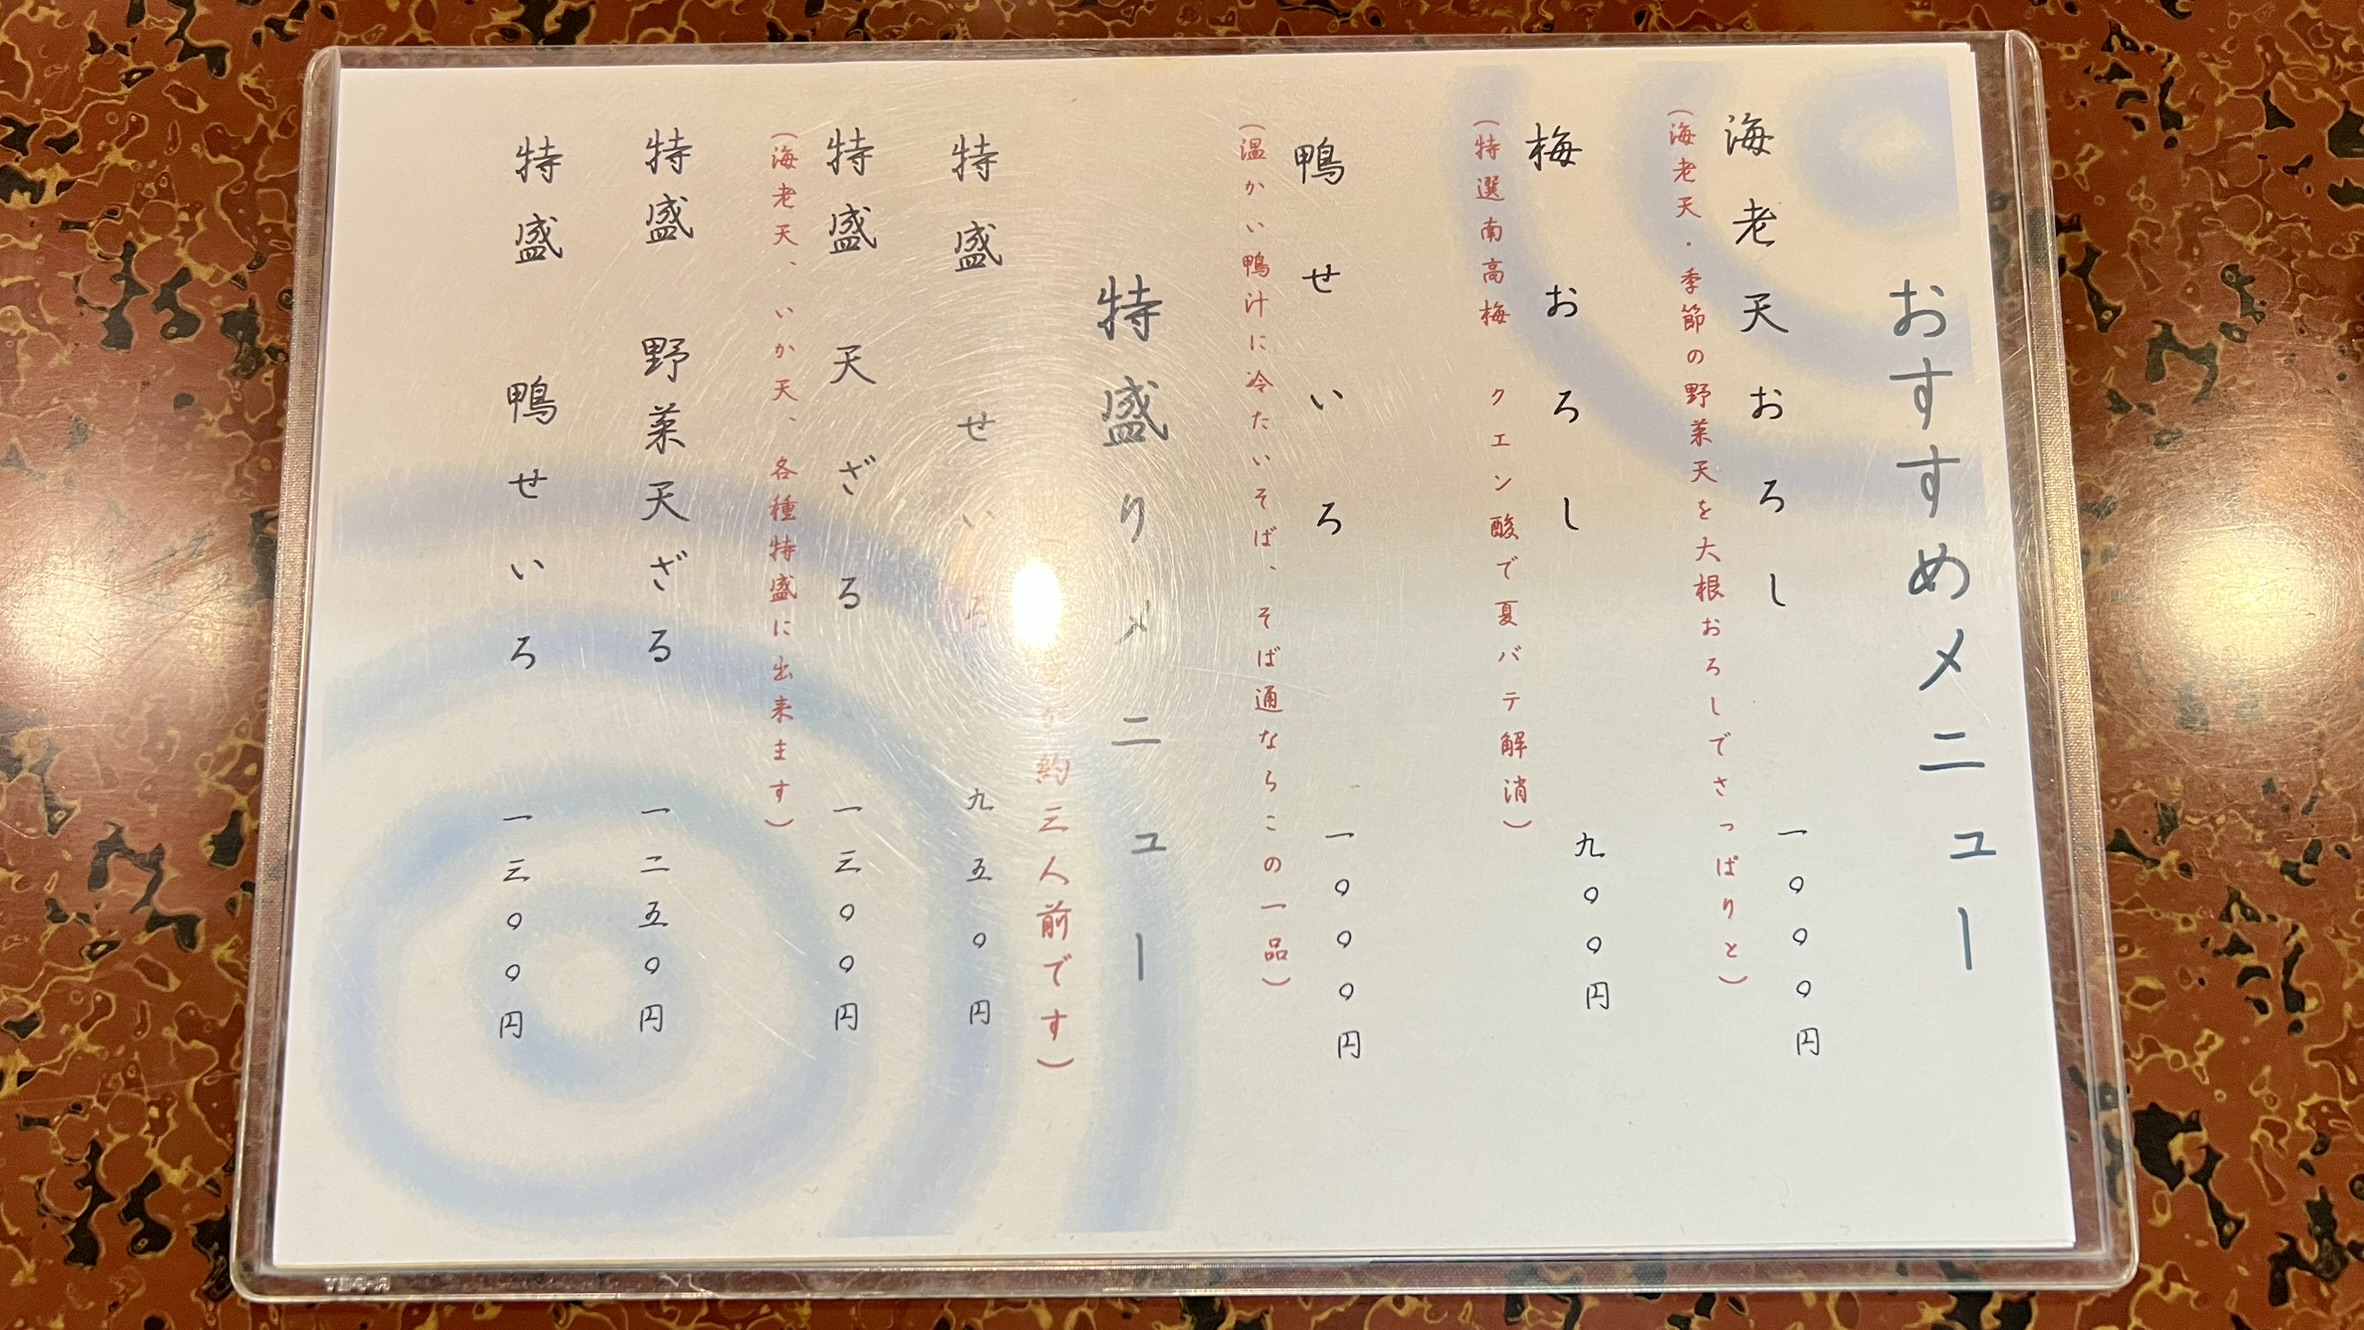 おすすめメニュー
海老天おろし 一〇〇〇円
(海老天・季節の野菜天を大根おろしでさっぱりと)
梅おろし 九〇〇円
(特選南高梅 クエン酸で夏バテ解消)
鴨せいろ 一〇〇〇円
(温かい鴨汁に冷たいそば、そば通ならこの一品)
特盛りメニュー
約三人前です)
特盛 せいろ 九五〇円
特盛 天ざる 一三〇〇円
(海老天、いか天、各種特盛に出来ます)
特盛 野菜天ざる 一二五〇円
特盛 鴨せいろ 一三〇〇円